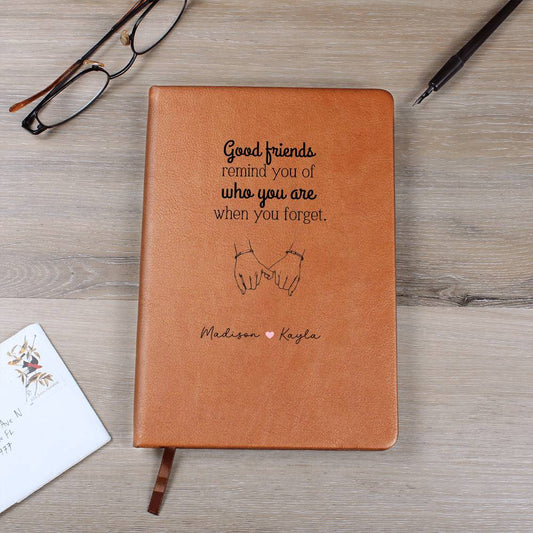 Good friends
remind you of
who you are
when you forget.
Madison Kayla
Ave N
FL
977